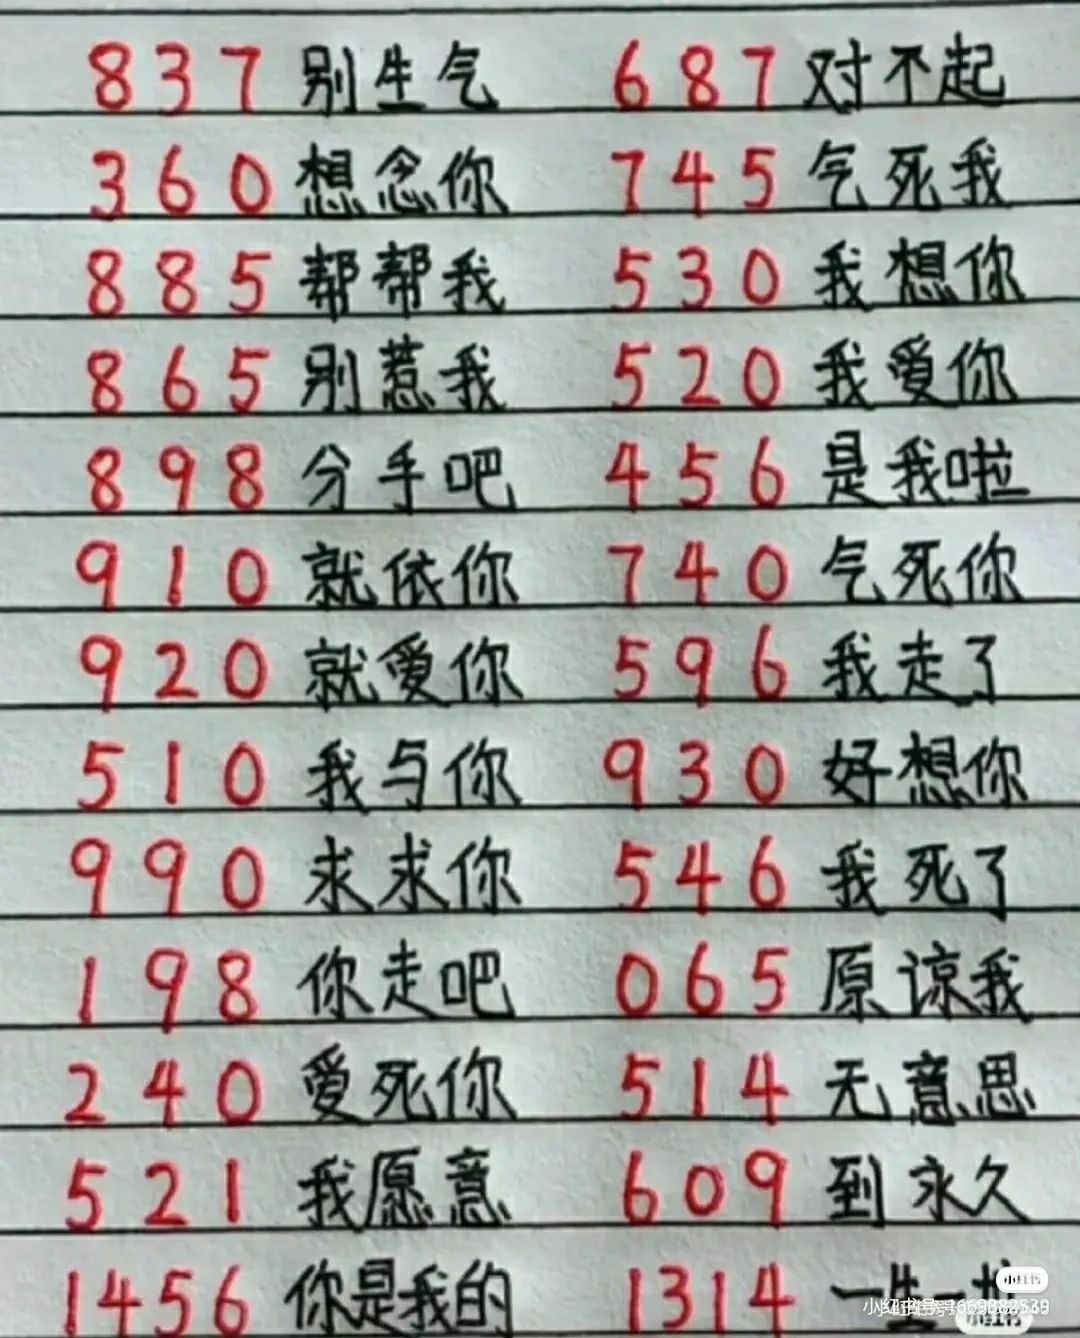 837 别生气 687 对不起
360 想念你 745 气死我
885 帮帮我 530 我想你
865 别惹我 520 我爱你
898 分手吧 456 是我啦
910 就依你 740 气死你
920 就爱你 596 我走了
510 我与你 930 好想你
990 求求你 546 我死了
198 你走吧 065 原谅我
240 爱死你 514 无意思
521 我愿意 609 到永久
1456 你是我的 1314 一生一
小红书
小红书号:
小红书